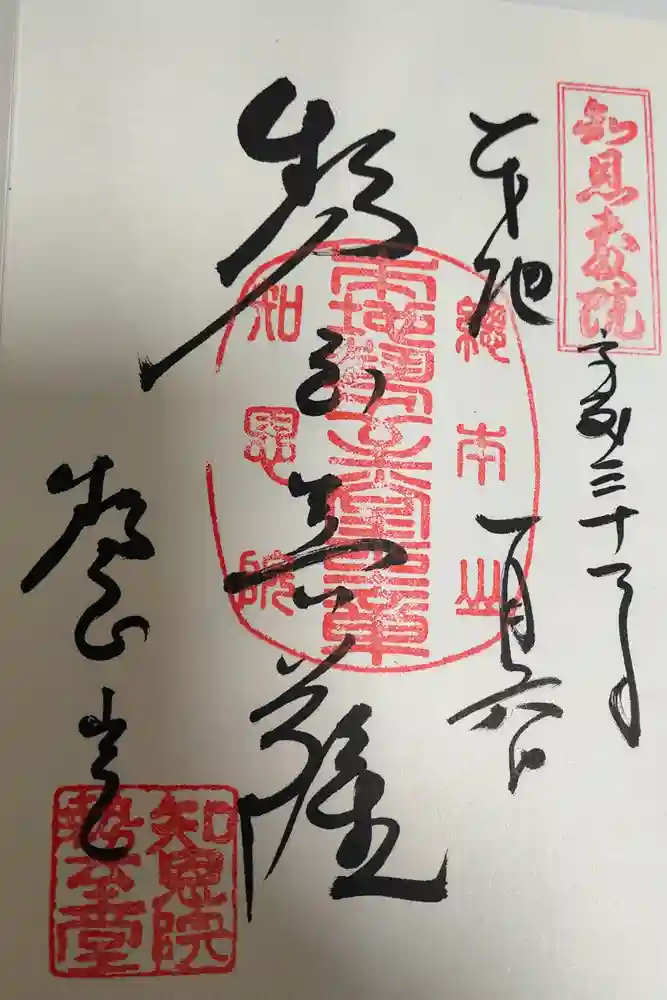 知恩教院
平成三十一年
本地
一月六日
總本山
知恩院
勢至菩薩
勢至堂
知恩院
勢至堂